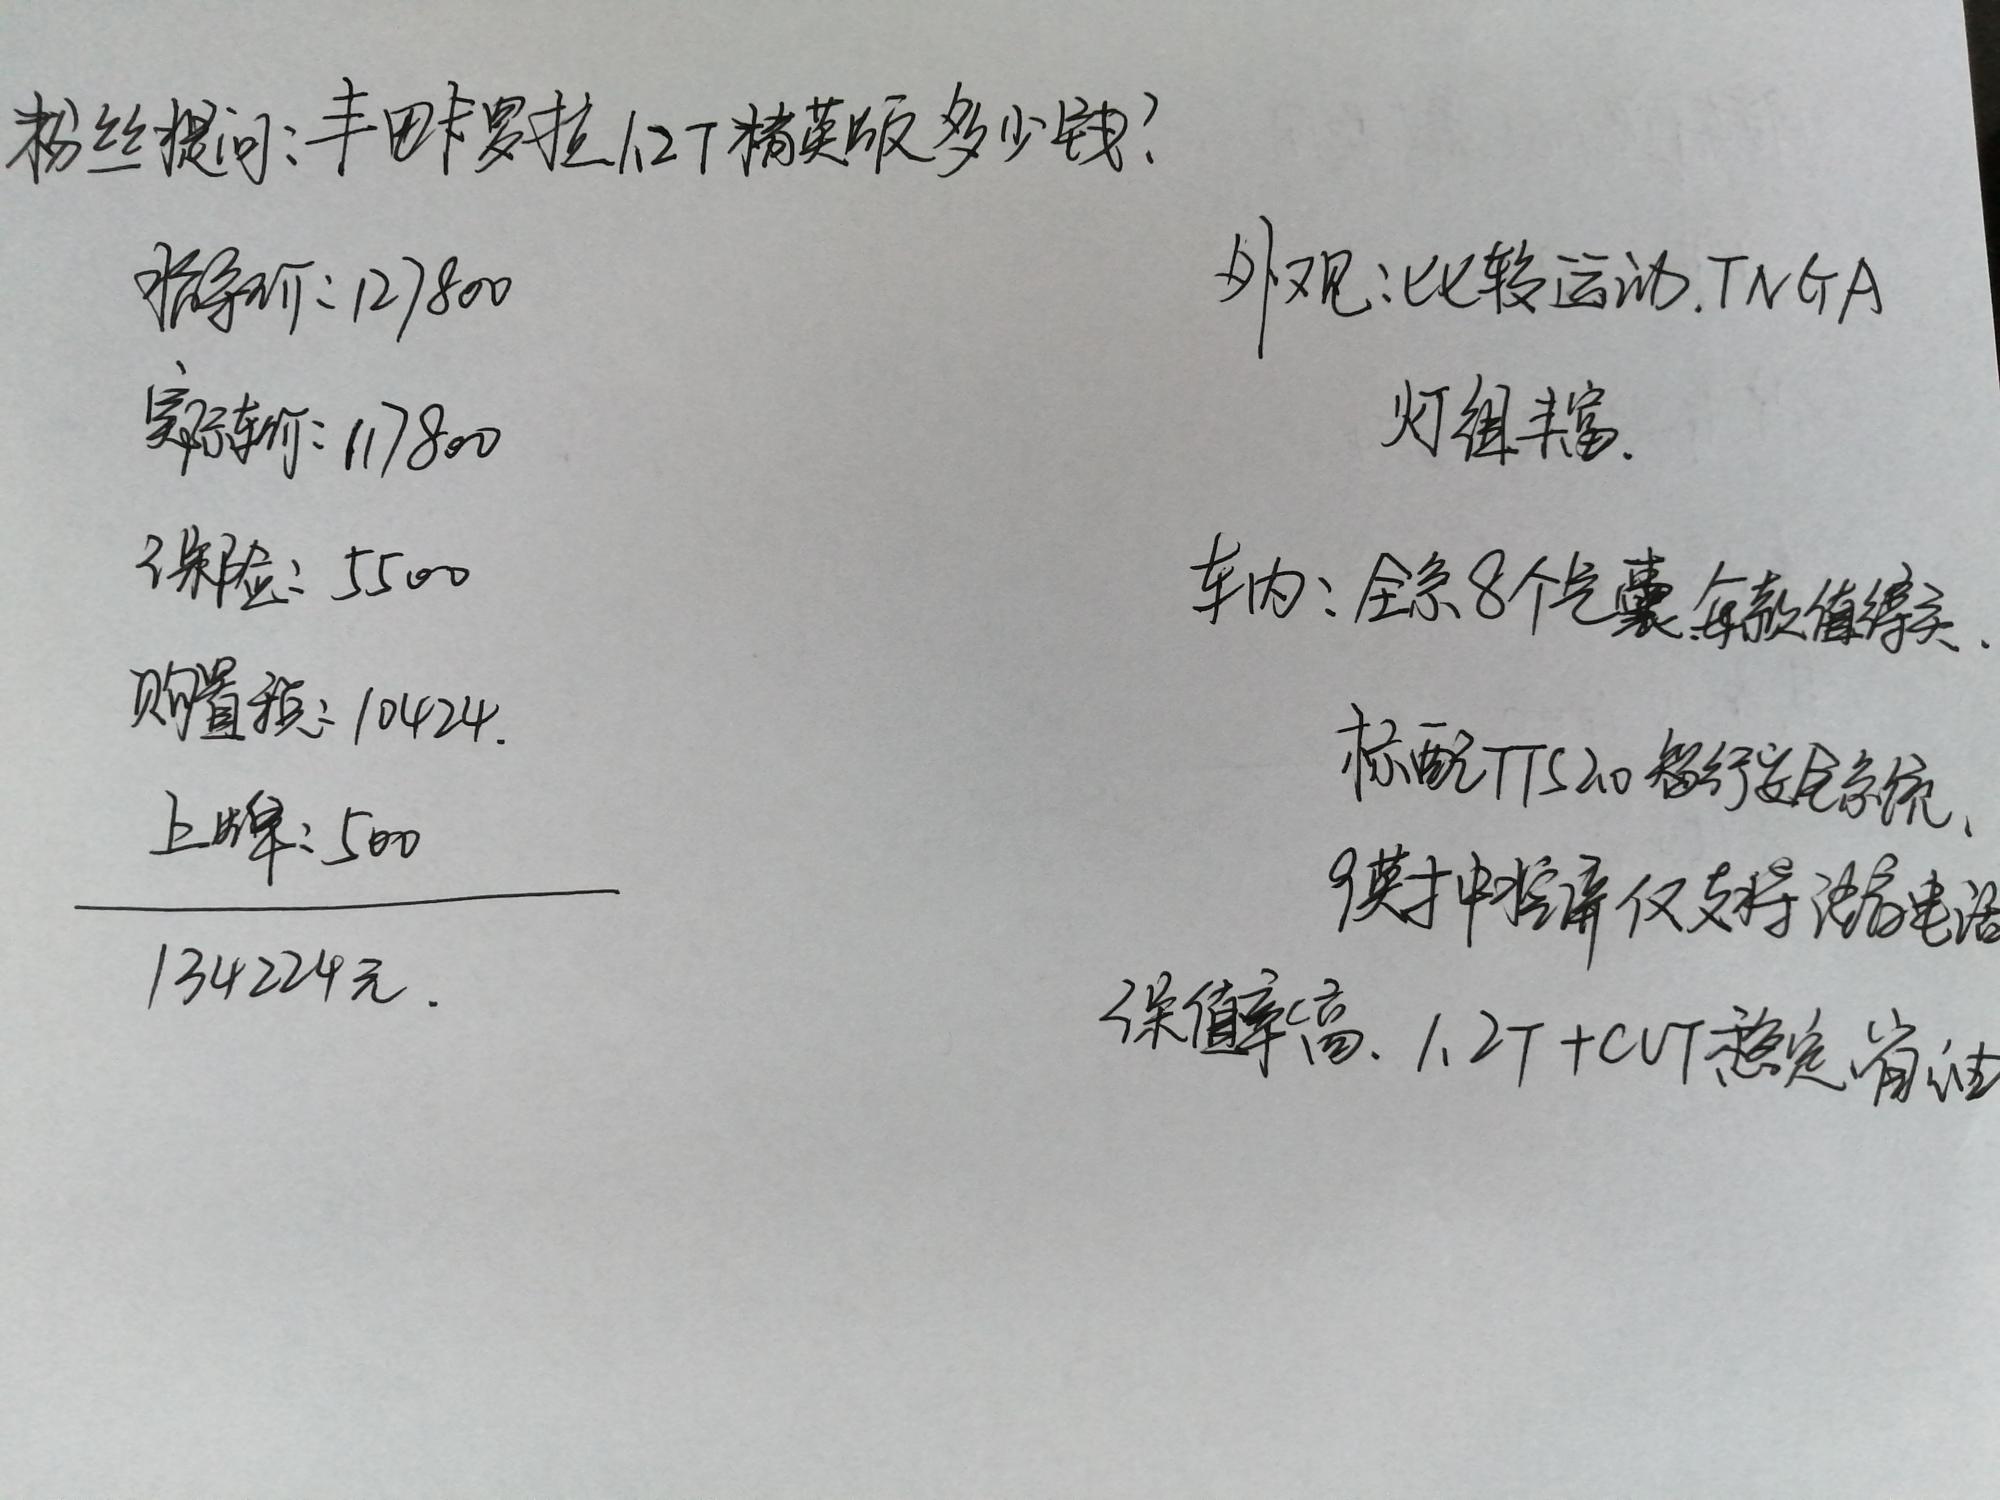 粉丝提问：丰田卡罗拉1.2T精英版多少钱？
指导价：127800
实际车价：117800
保险：5500
购置税：10424.
上牌：500
134224元.
外观：比较运动.TNGA
灯组丰富.
车内：全系8个气囊.每款值得买.
标配TTS2.0智行安全系统、
9英寸中控屏仅支持语音电话
保值率高、1.2T+CVT稳定省油